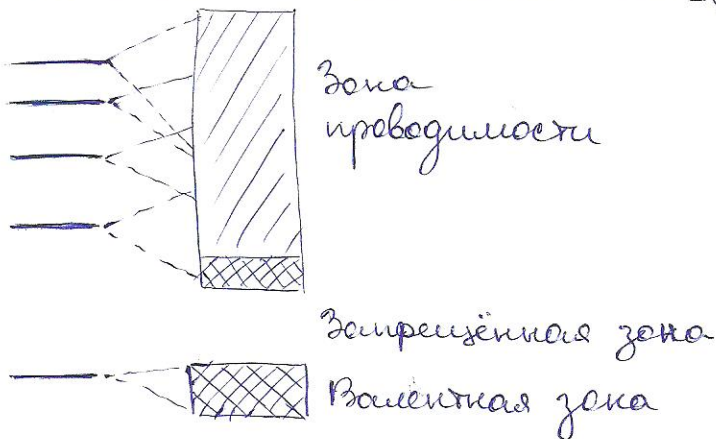 Зона
проводимости
Запрещённая зона
Валентная зона